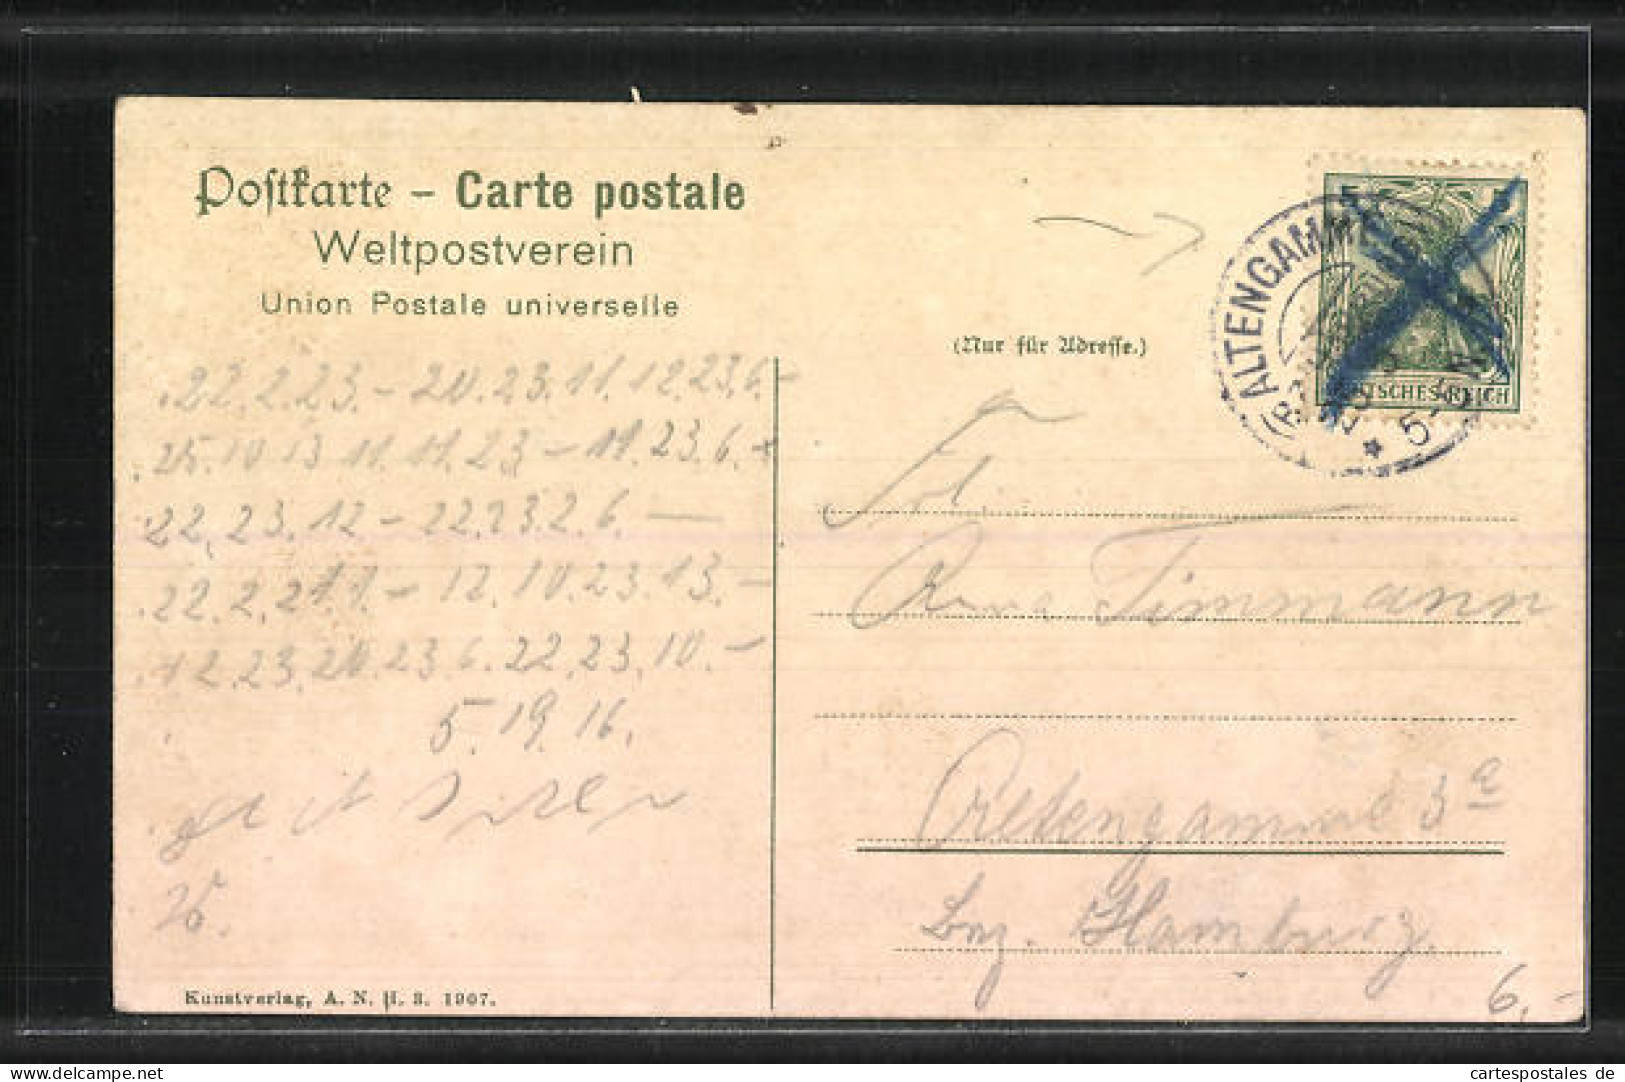 Postkarte – Carte postale
Weltpostverein
Union Postale universelle
(Nur für Adresse.)
ALTENGAMME
5 5
DEUTSCHES REICH
22.2.23. – 20.23.11.12.23.6. –
25.10 13 11.11.23 – 11.23.6. +
22.23.12 – 22.23.2.6. —
22.2.21.1. – 12.10.23.13. –
12.23.20.23.6.22.23.10. –
5.19.16.
Frl.
Anna Timmann
Altengamme 3a
Bez. Hamburg.
Kunstverlag, A. N. H. 3. 1907.
6.-
www.cartespostales.com
cartespostales de